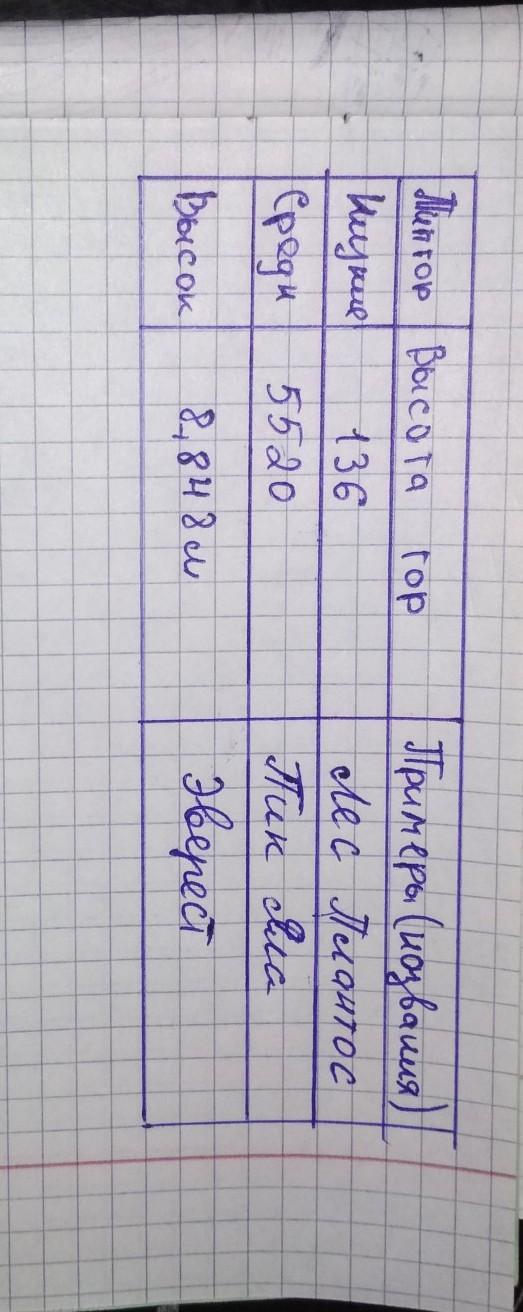 Тип гор Высота гор Примеры (названия)
Низкие 136 Лес Плантос
Средн 5520 Пик Яла
Высок 8,848 м Эверест